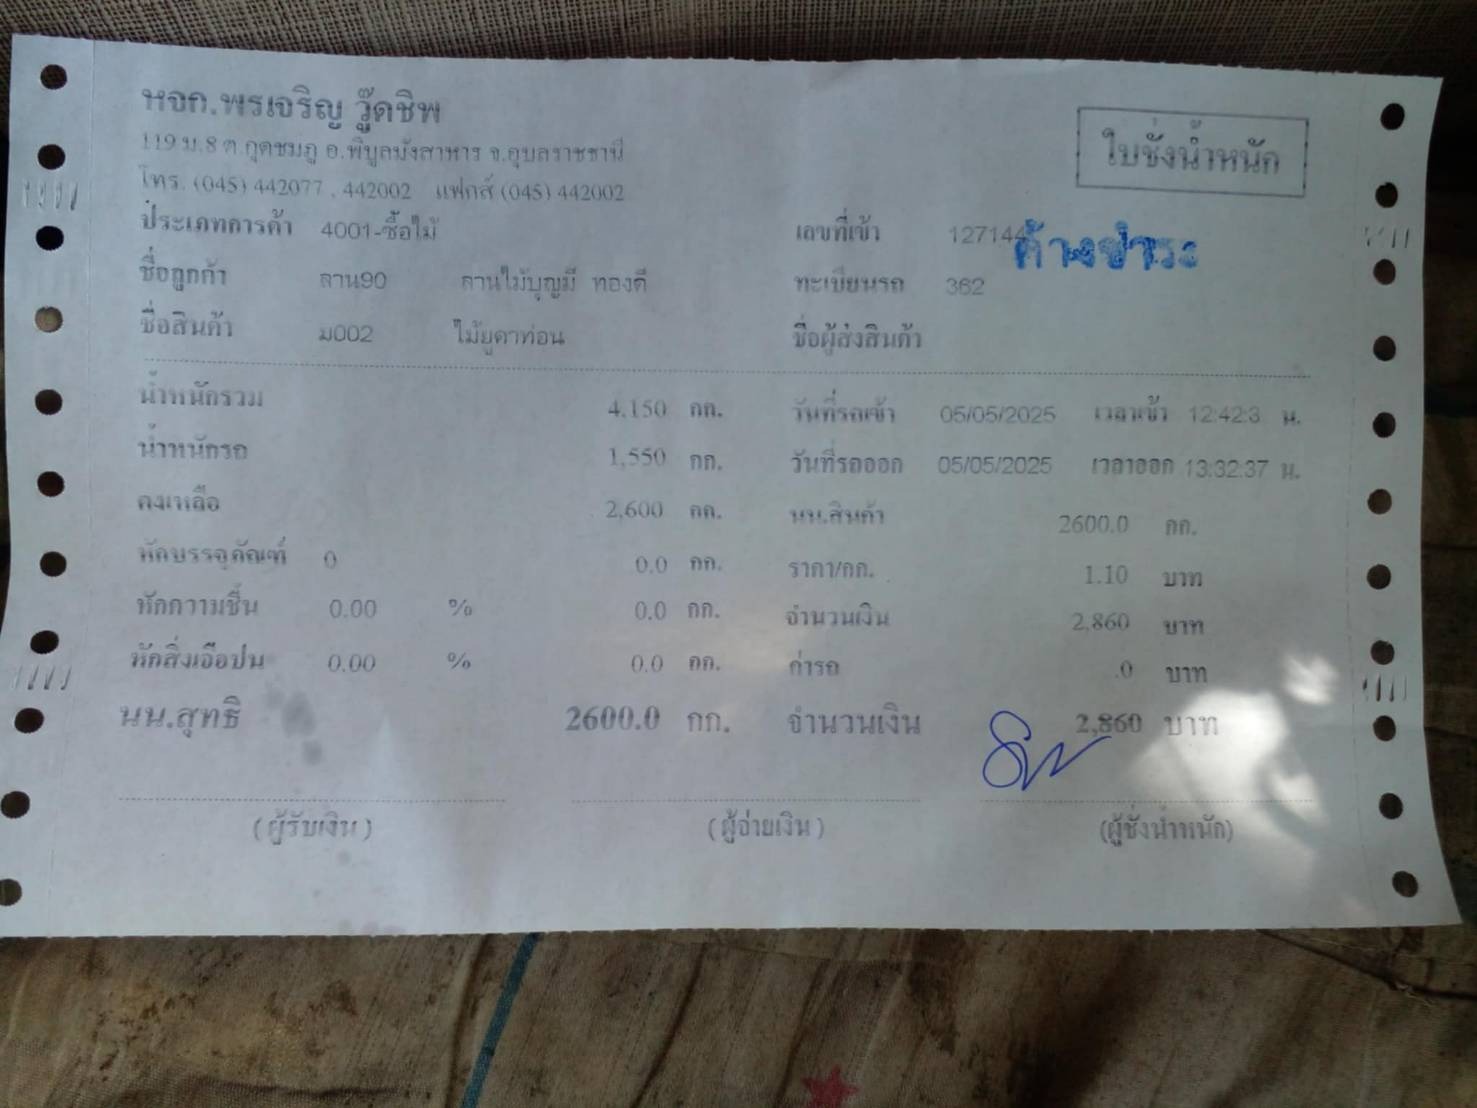 หจก.พรเจริญ วู๊ดชิพ
ใบชั่งน้ำหนัก
119 ม.8 ต.กุดชมภู อ.พิบูลมังสาหาร จ.อุบลราชธานี
โทร. (045) 442077 , 442002 แฟกส์ (045) 442002
ประเภทการค้า 4001-ซื้อไม้ เลขที่เข้า 127144 ค้างชำระ
ชื่อลูกค้า ลาน90 ลานไม้บุญมี ทองดี ทะเบียนรถ 362
ชื่อสินค้า ม002 ไม้ยูคาท่อน ชื่อผู้ส่งสินค้า
น้ำหนักรวม 4,150 กก. วันที่รถเข้า 05/05/2025 เวลาเข้า 12:42:3 น.
น้ำหนักรถ 1,550 กก. วันที่รถออก 05/05/2025 เวลาออก 13:32:37 น.
คงเหลือ 2,600 กก. นน.สินค้า 2600.0 กก.
หักบรรจุภัณฑ์ 0 0.0 กก. ราคา/กก. 1.10 บาท
หักความชื้น 0.00 % 0.0 กก. จำนวนเงิน 2,860 บาท
หักสิ่งเจือปน 0.00 % 0.0 กก. ค่ารถ .0 บาท
นน.สุทธิ 2600.0 กก. จำนวนเงิน 2,860 บาท
(ผู้รับเงิน) (ผู้จ่ายเงิน) (ผู้ชั่งน้ำหนัก)